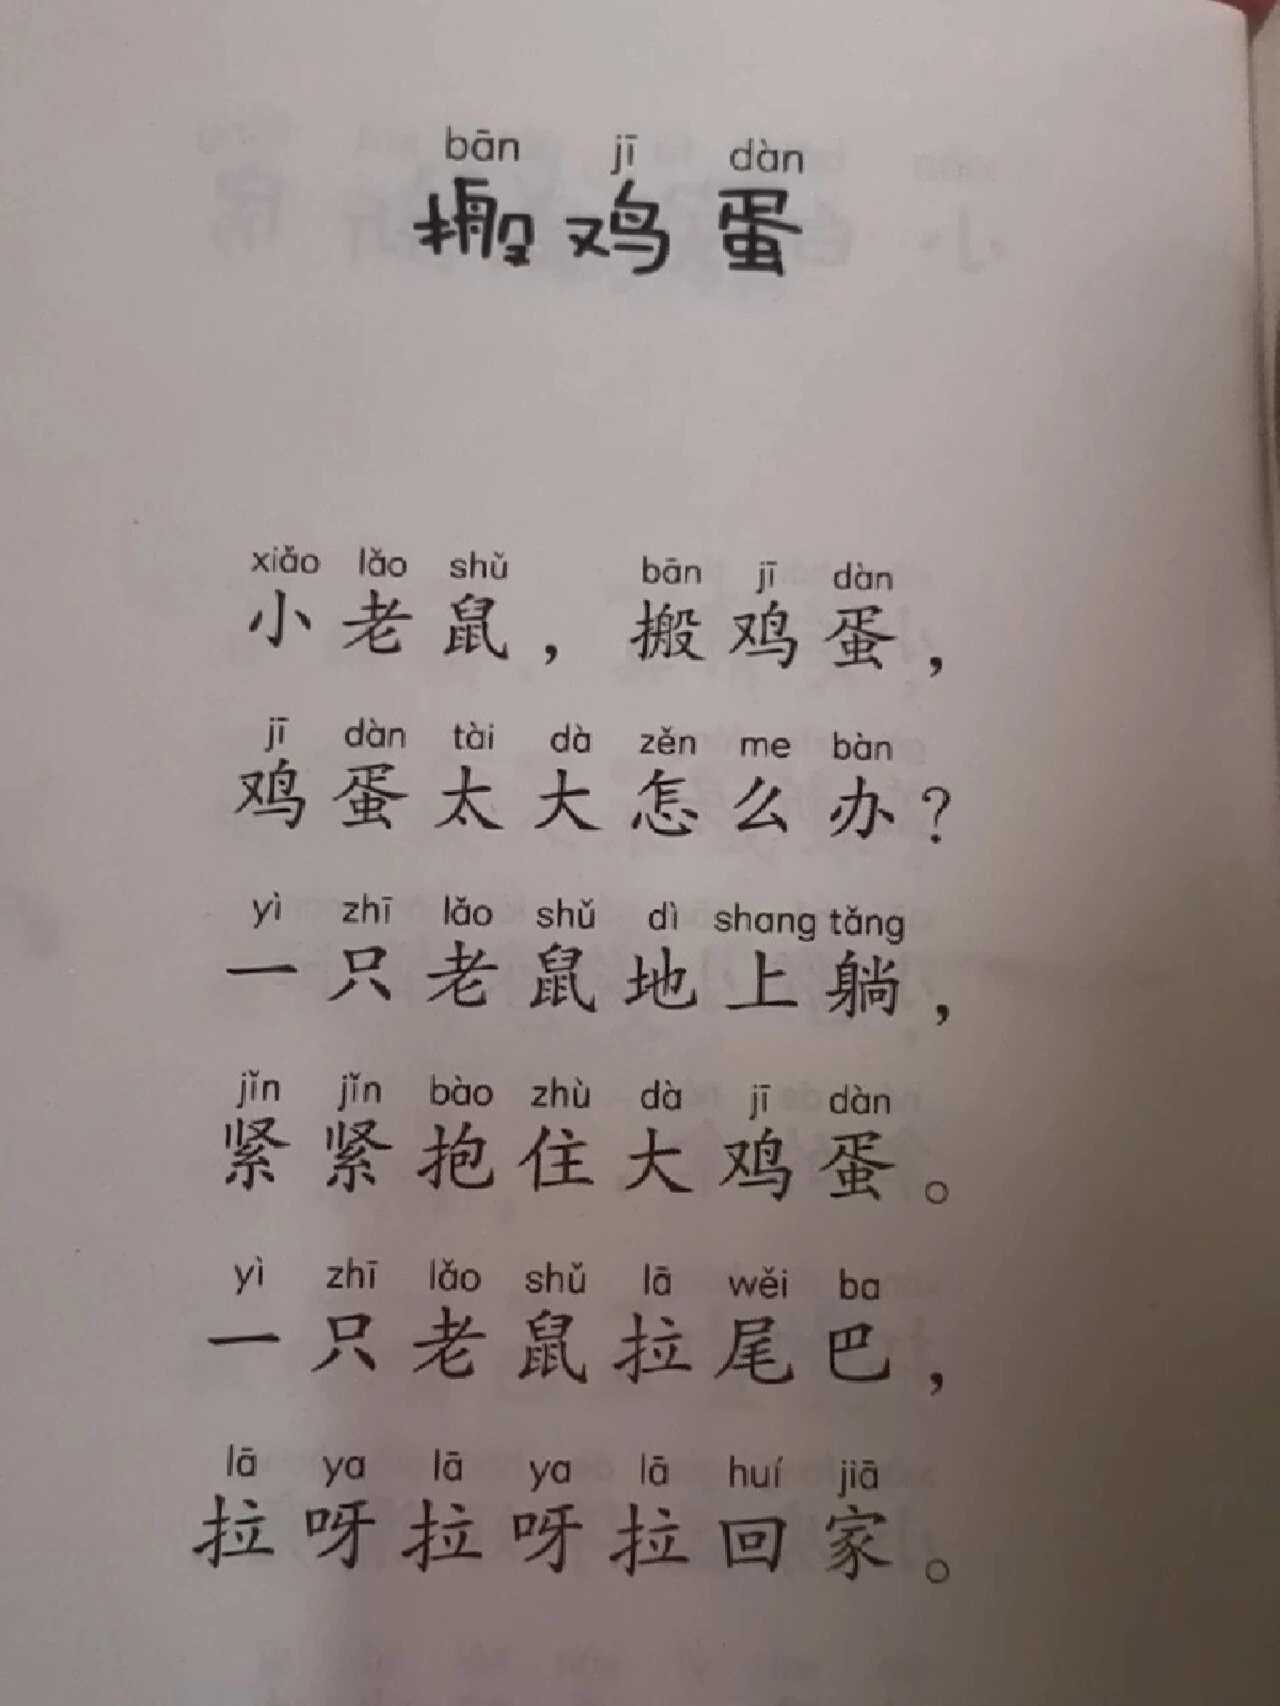 bān jī dàn
搬鸡蛋
xiǎo lǎo shǔ bān jī dàn
小老鼠，搬鸡蛋，
jī dàn tài dà zěn me bàn
鸡蛋太大怎么办？
yì zhī lǎo shǔ dì shang tǎng
一只老鼠地上躺，
jǐn jǐn bào zhù dà jī dàn
紧紧抱住大鸡蛋。
yì zhī lǎo shǔ lā wěi ba
一只老鼠拉尾巴，
lā ya lā ya lā huí jiā
拉呀拉呀拉回家。